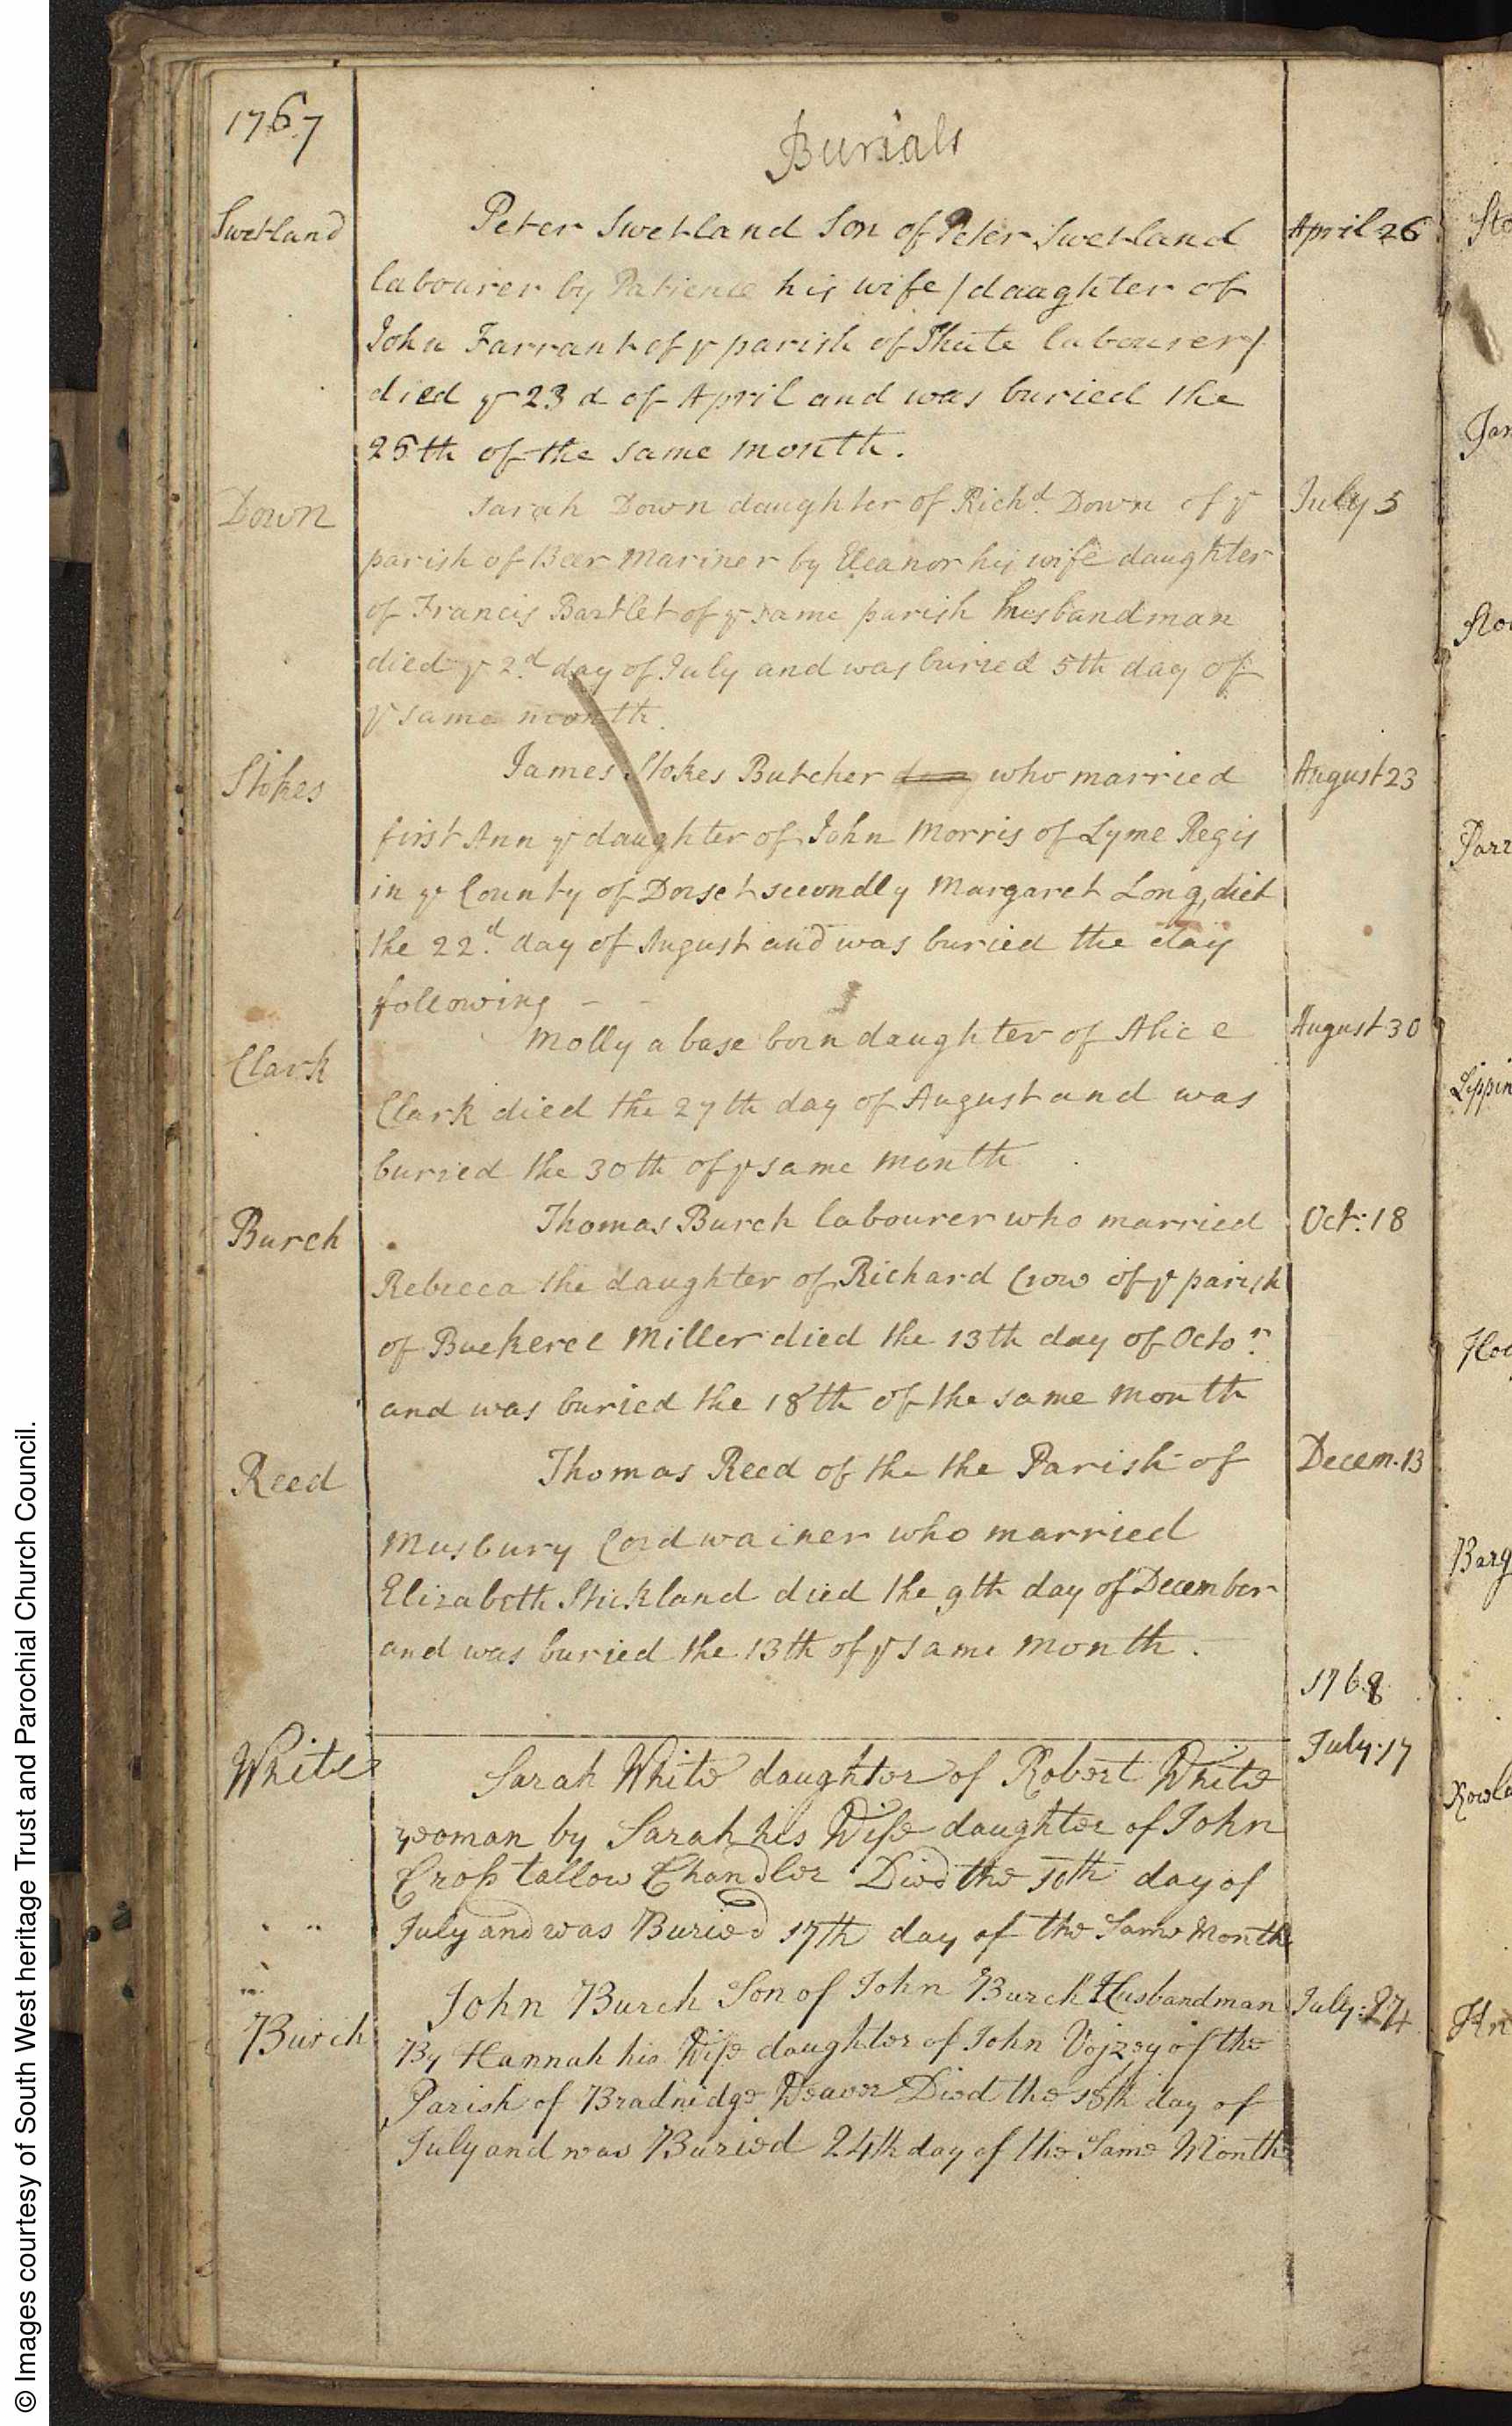 1767
Burials
Swetland
Peter Swetland Son of Peter Swetland
April 26
labourer by Patience his wife / daughter of
John Farrant of yͤ parish of Shute labourer /
died yͤ 23 d of April and was buried the
26th of the same month.
Down
Sarah Down daughter of Richd. Down of yͤ
July 5
parish of Beer Mariner by Eleanor his wife daughter
of Francis Bartlet of yͤ same parish husbandman
died yͤ 2d. day of July and was buried 5th day of
yͤ same month.
Stokes
James Stokes Butcher who married
August 23
first Ann yͤ daughter of John Morris of Lyme Regis
in yͤ County of Dorset secondly Margaret Long, died
the 22d. day of August and was buried the day
following - -
Clark
Molly a base born daughter of Alice
August 30
Clark died the 27th day of August and was
buried the 30th of yͤ same month
Burch
Thomas Burch labourer who married
Oct: 18
Rebecca the daughter of Richard Crow of yͤ parish
of Buckerel Miller died the 13th day of Octo.r
and was buried the 18th of the same month
Reed
Thomas Reed of the the Parish of
Decem. 13
Musbury Cordwainer who married
Elizabeth Stickland died the 9th day of December
and was buried the 13th of yͤ same month.
1768
White
Sarah White daughter of Robert White
July: 17
yeoman by Sarah his Wife daughter of John
Cross tallow Chandler Died the 10th day of
July and was Buried 17th day of the Same Month
Burch
John Burch Son of John Burch Husbandman
July: 24
By Hannah his Wife daughter of John of the
Parish of Bradnidge Weaver Died the 18th day of
July and was Buried 24th day of the Same Month
© Images courtesy of South West heritage Trust and Parochial Church Council.